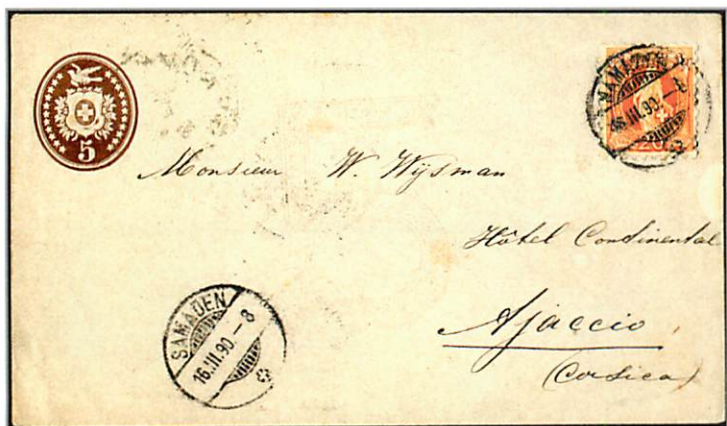 5
SAMADEN
16.III.90.-8
20
Monsieur W. Wijsman
Hôtel Continental
Ajaccio
(Corsica)
SAMADEN
16.III.90.-8